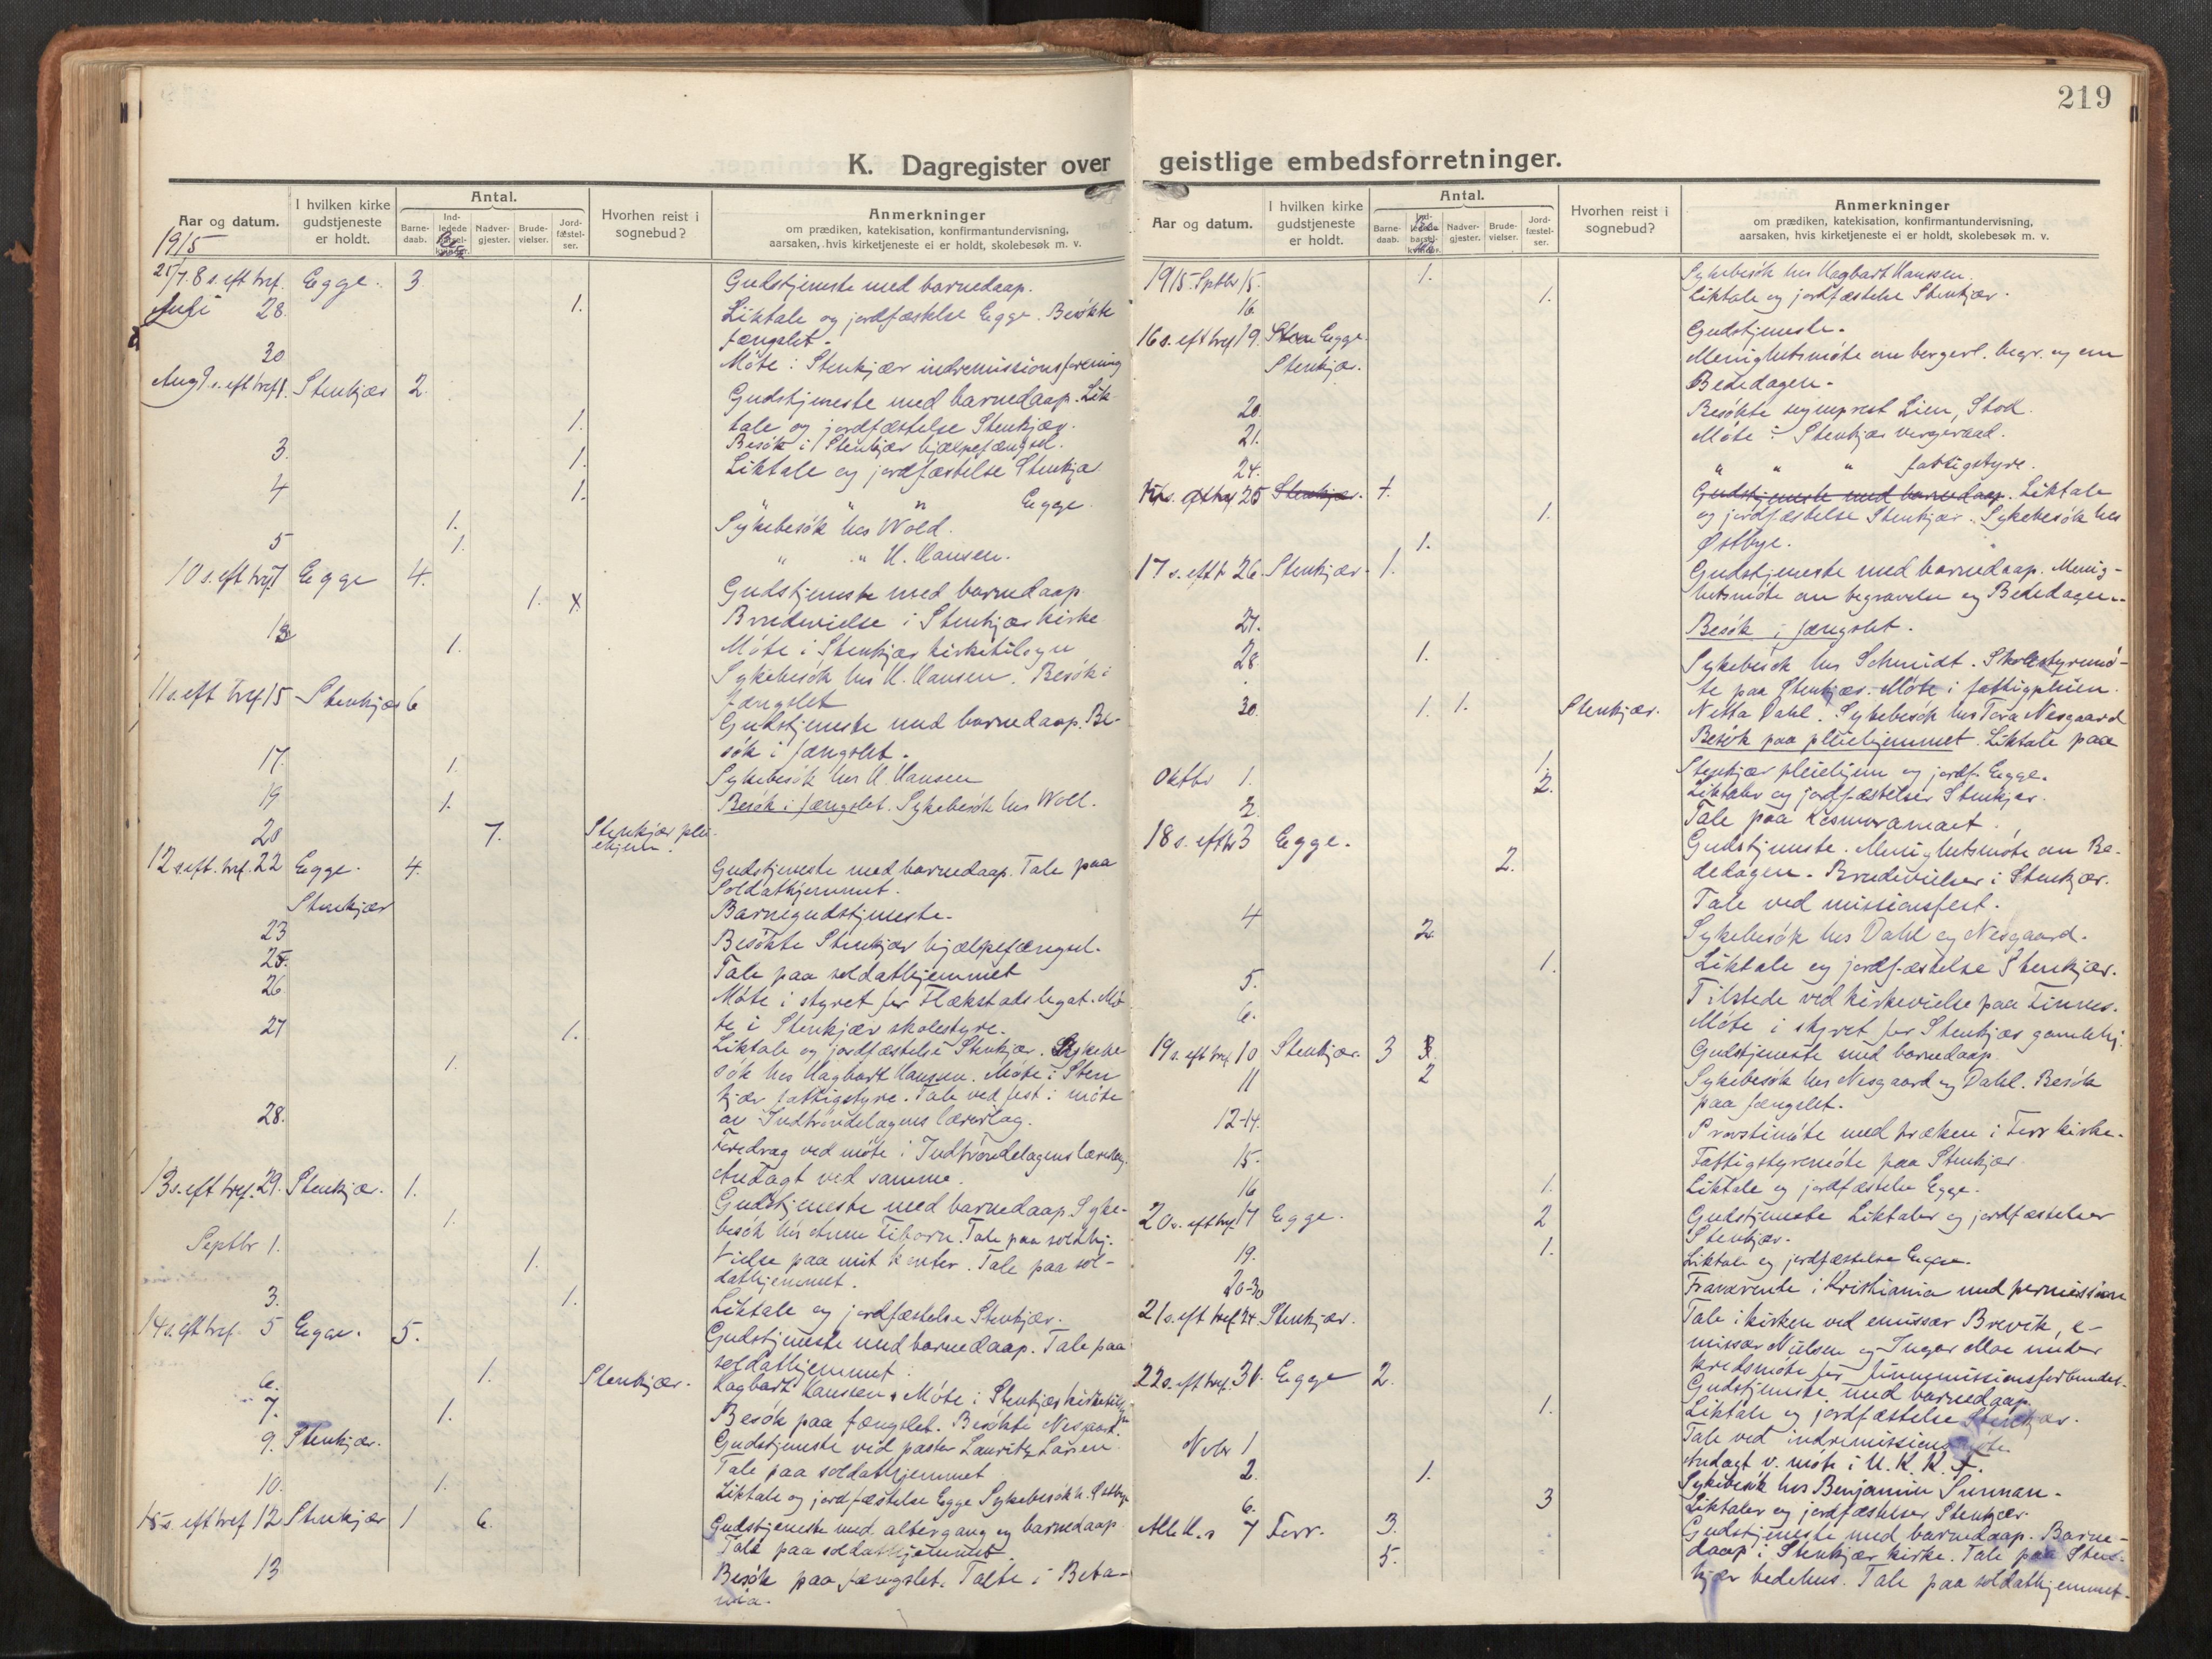 219
K. Dagregister over geistlige embedsforretninger.
Aar og datum.
I hvilken kirke gudstjeneste er holdt.
Antal.
Barne-daab.
Nadver-gjester.
Brude-vielser.
Jord-fæstel-ser.
Hvorhen reist i sognebud?
Anmerkninger
om prædiken, katekisation, konfirmantundervisning,
aarsaken, hvis kirketjeneste ei er holdt, skolebesøk m. v.
1915
25/7. 8 s. eft tref. Egge. 3 Gudstjeneste med barnedaap.
Juli 28. 1. Liktale og jordfæstelse Egge. Besökte
fængslet.
30 Möte i Stenkjær indremissionsforening
Aug 9 s. eft tref 1. Stenkjær 2. Gudstjeneste med barnedaap. Lik
1. tale og jordfæstelse Stenkjær.
Besök i Stenkjær hjælpefængsel.
3. 1. Liktale og jordfæstelse Stenkjær
4 1. " " " Egge.
1. Sykebesök hos Wold.
5 1. " " H. Hansen.
10 s. eft tref Egge 4. Gudstjeneste med barnedaap
1. x Brudevielse i Stenkjær kirke
Möte i Stenkjær kirketilsyn
1. Sykebesök hos H. Hansen. Besök i
fængslet
11 s. eft tref 15 Stenkjær 6 Gudstjeneste med barnedaap. Be-
sök i fængslet.
17. 1. Sykebesök hos H. Hansen
19 1. Besök i fængslet. Sykebesök hos Woll.
20 7. Stenkjær plei-
ehjem.
12 s. eft. tref. 22 Egge. 4. Gudstjeneste med barnedaap. Tale paa
Soldathjemmet.
Stenkjær Barnegudstjeneste.
23 Besökte Stenkjær hjælpefængsel.
25. Tale paa soldathjemmet
26 Möte i styret for Flækstads legat. Mö
te i Stenkjær skolestyre.
27 1. Liktale og jordfæstelse Stenkjær. Sykebe
1. sök hos Hagbart Hansen. Möte i Sten
kjær fattigstyre. Tale ved fest i möte
28. av Indtröndelagens lærerlag.
Foredrag ved möte i Indtröndelagens lærerlag.
Andagt ved samme.
13 s. eft tref. 29. Stenkjær. 1. Gudstjeneste med barnedaap. Syke-
1. besök hos Anne Fiborn. Tale paa soldthj.
Septbr 1. 1. Vielse paa mit kontor. Tale paa sol-
dathjemmet.
3. 1. Liktale og jordfæstelse Stenkjær.
14 s. eft tref. 5 Egge. 5. Gudstjeneste med barnedaap. Tale paa
soldathjemmet.
6. 1. Stenkjær. Hagbart Hansen. Möte i Stenkjær kirketilsyn
7. 1. Besök paa fængslet. Besökte Nesgaard.
9. Stenkjær. Gudstjeneste ved pastor Lauritz Larsen.
Tale paa soldathjemmet
10. 1. Liktale og jordfæstelse Egge Sykebesök h. Östbye
15 s. eft tref 12 Stenkjær 1 6. Gudstjeneste med altergang og barnedaap
Tale paa soldathjemmet.
13 Besök paa fængslet. Talte i Beta-
nia.
Aar og datum.
I hvilken kirke gudstjeneste er holdt.
Antal.
Barne-daab.
Nadver-gjester.
Brude-vielser.
Jord-fæstel-ser.
Hvorhen reist i sognebud?
Anmerkninger
om prædiken, katekisation, konfirmantundervisning,
aarsaken, hvis kirketjeneste ei er holdt, skolebesøk m. v.
1915. Sptbr 15. 1. Sykebesök hos Hagbart Hanssen.
16. 1. Liktale og jordfæstelse Stenkjær.
16 s. eft tref 19. Egge. Gudstjeneste.
Stenkjær. Menighetsmöte om borgerl. begr. og om
Bededagen.
20. Besökte sogneprest Lien, Stod.
21. Möte i Stenkjær vergeraad.
24. " " " fattigstyre.
25 Stenkjær. 1. Gudstjeneste med barnedaap. Liktale
1. og jordfæstelse Stenkjær. Sykebesök hos
1. Østbye.
17 s. eft t 26. Stenkjær. 1. Gudstjeneste med barnedaap. Menig-
hetsmöte om begravelse og Bededagen.
27. Besök i fængslet.
28. 1. Sykebesök hos Schmidt. Skolestyremö-
te paa Stenkjær. Möte i fattigpleien.
30. 1. 1. Stenkjær. Netta Dahl. Sykebesök hos Tora Nesgaard
Besök paa pleiehjemmet. Liktale paa
1. Stenkjær pleiehjem og jordf. Egge.
Oktbr 1. 2. Liktaler og jordfæstelser Stenkjær.
2. Tale paa Kosmoramaet.
18 s. eft tr 3 Egge. Gudstjeneste. Menighetsmöte om Be-
2. dedagen. Brudevielser i Stenkjær.
Tale ved missionsfest.
4 2 Sykebesök hos Dahl og Nesgaard.
1. Liktale og jordfæstelse Stenkjær.
5. Tilstede ved kirkevielse paa Finnes.
6. Möte i styret for Stenkjær gamlehj.
19 s. eft tref 10 Stenkjær. 3 Gudstjeneste med barnedaap.
11 2 Sykebesök hos Nesgaard og Dahl. Besök
paa fængslet.
12-14. Provstimöte med præken i Forr kirke.
15. Fattigstyremöte paa Stenkjær.
16 1. Liktale og jordfæstelse Egge.
20 s. eft tref 17 Egge. 2 Gudstjeneste Liktaler og jordfæstelser
Stenkjær.
19. 1. Liktale og jordfæstelse Egge.
20-30 Fraværende i Kristiania med permission
21 s. eft tref 24. Stenkjær. Tale i kirken ved emissær Brevik, e-
missær Nielsen og Inger Moe under
kredsmöte for finnemissionsforbundet.
22 s. eft tref. 31. Egge 2. Gudstjeneste med barnedaap.
1. Liktale og jordfæstelse Stenkjær.
Novbr 1 Tale ved indremissionsmöte
2. Andagt v. möte i U. K. K. F.
1. Sykebesök hos Benjamin Sunnan.
6. 3 Liktaler og jordfæstelser Stenkjær
Alle H. s 7 Forr. 3. Gudstjeneste med barnedaap. Barne-
5. daap i Stenkjær kirke. Tale paa Sten-
kjær bedehus. Tale paa soldathjemmet.